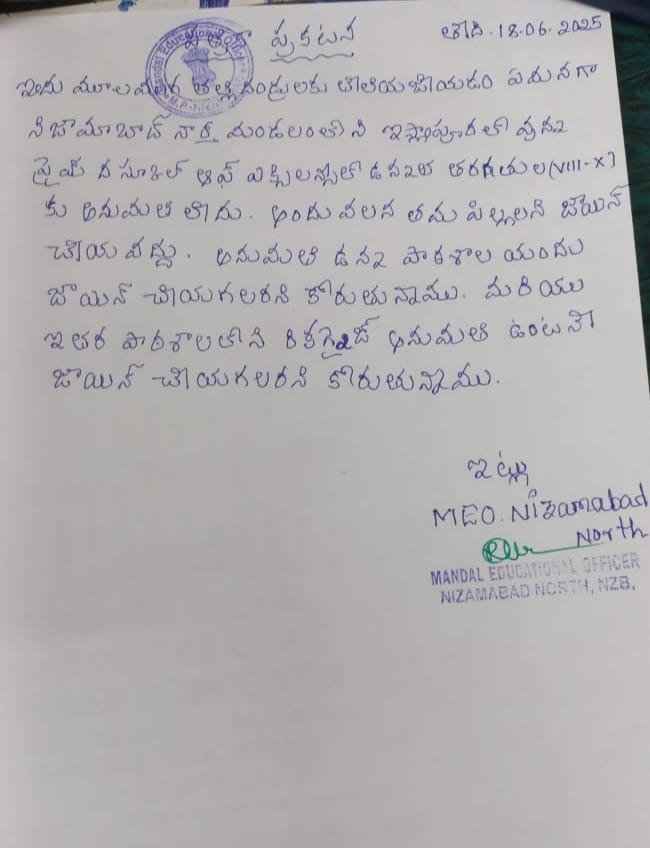 పత్రికా ప్రకటన
తేది. 18-06-2025
ఇందు మూలముగా తల్లి దండ్రులకు తెలియజేయడం ఏమనగా
నిజామాబాద్ నార్త్ మండలంలోని ఇస్లాపూరలో వున్న
ప్రైమ్ ద స్కూల్ ఆఫ్ ఎక్సిలెన్స్‌లో ఉన్నత తరగతుల (VIII-X)
కు అనుమతి లేదు. అందు వలన తమ పిల్లలని జాయిన్
చేయ వద్దు. అనుమతి ఉన్న పాఠశాల యందు
జాయిన్ చేయగలరని కోరుతున్నాము. మరియు
ఇతర పాఠశాలలోని రికగ్నైజ్డ్ అనుమతి ఉంటనే
జాయిన్ చేయగలరని కోరుతున్నాము.
ఇట్లు
MEO. Nizamabad
North
MANDAL EDUCATIONAL OFFICER
NIZAMABAD NORTH, NZB.